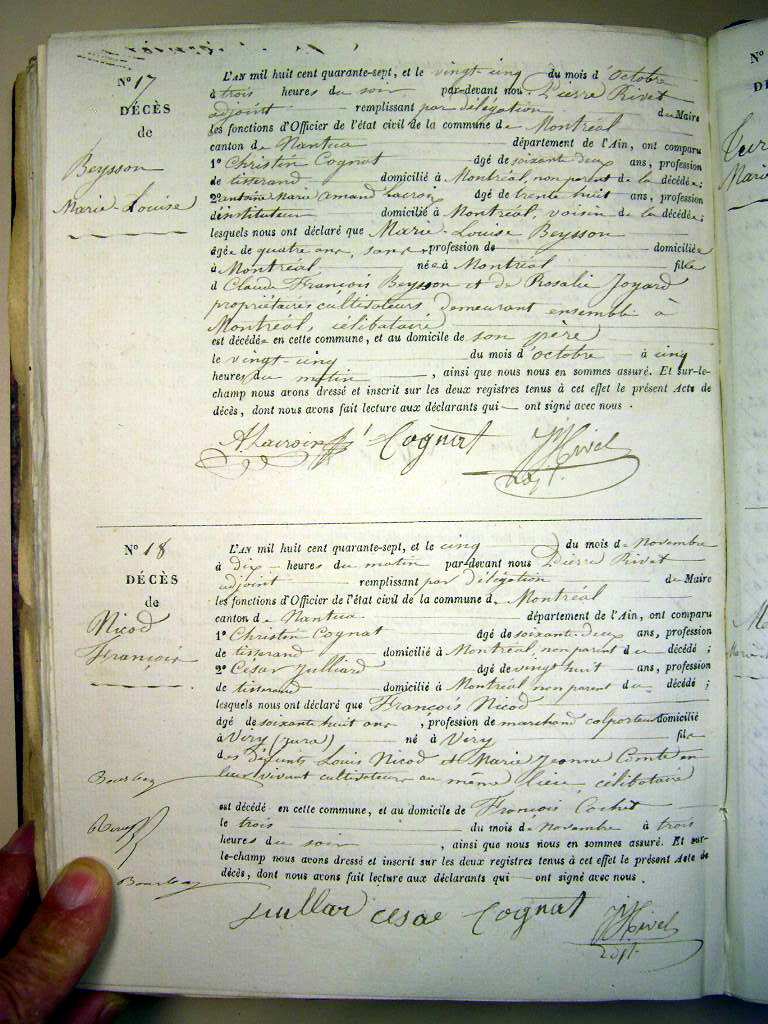 N° 17
DÉCÈS
de
Beysson
Marie Louise
L'AN mil huit cent quarante-sept, et le vingt-cinq du mois d'octobre
à trois heures du soir par-devant nous Pierre Rivet
adjoint remplissant par délégation du Maire
les fonctions d'Officier de l'état civil de la commune de Montréal
canton de Nantua département de l'Ain, ont comparu
1° Christin Cognat âgé de soixante deux ans, profession
de tisserand domicilié à Montréal, non parent de la décédée;
2° antoine Marie amand Lacroix âgé de trente huit ans, profession
d'instituteur domicilié à Montréal, voisin de la décédée;
lesquels nous ont déclaré que Marie-Louise Beysson
âgée de quatre ans, sans profession de domiciliée
à Montréal née à Montréal fille
d Claude François Beysson et de Rosalie Joyard
propriétaires cultivateurs demeurant ensemble à
Montréal, célibataire
est décédée en cette commune, et au domicile de son père
le vingt-cinq du mois d'octobre à cinq
heures du matin, ainsi que nous nous en sommes assuré. Et sur-le-
champ nous avons dressé et inscrit sur les deux registres tenus à cet effet le présent Acte de
décès, dont nous avons fait lecture aux déclarants qui — ont signé avec nous.
ALacroix Cognat Rivet
adjt.
N° 18
DÉCÈS
de
Nicod
François
L'AN mil huit cent quarante-sept, et le cinq du mois de Novembre
à dix heures du matin par-devant nous Pierre Rivet
adjoint remplissant par délégation du Maire
les fonctions d'Officier de l'état civil de la commune de Montréal
canton de Nantua département de l'Ain, ont comparu
1° Christin Cognat âgé de soixante-deux ans, profession
de tisserand domicilié à Montréal, non parent du décédé;
2° César Julliard âgé de vingt huit ans, profession
de tisserand domicilié à Montréal non parent du décédé;
lesquels nous ont déclaré que François Nicod
âgé de soixante huit ans, profession de marchand colporteur domicilié
à Viry (jura) né à Viry fils
des défunts Louis Nicod et Marie Jeanne Comte en
leur vivant cultivateurs au même lieu, célibataire
est décédé en cette commune, et au domicile de François Cochet
le trois du mois de Novembre à trois
heures du soir, ainsi que nous nous en sommes assuré. Et sur-
le-champ nous avons dressé et inscrit sur les deux registres tenus à cet effet le présent Acte de
décès, dont nous avons fait lecture aux déclarants qui — ont signé avec nous.
juillar cesae Cognat Rivet
adjt.
N°